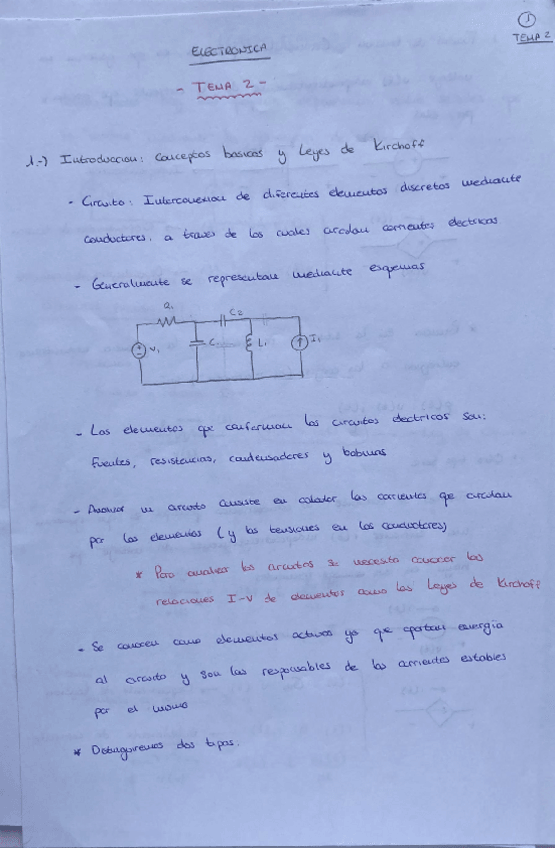 1
TEMA 2
ELECTRONICA
- TEMA 2 -
1.-) Introduccion: conceptos basicos y Leyes de Kirchoff
- Circuito: Interconexion de diferentes elementos discretos mediante
conductores, a traves de los cuales circulan corrientes electricas
- Generalmente se representan mediante esquemas
R1
C2
V1
C
L1
I1
- Los elementos que conforman los circuitos electricos son:
Fuentes, resistencias, condensadores y bobinas
- Analizar un circuito consiste en calcular las corrientes que circulan
por los elementos (y las tensiones en los conductores)
* Para analizar los circuitos se necesita conocer las
relaciones I-V de elementos como las Leyes de Kirchoff
- Se conocen como elementos activos ya que aportan energia
al circuito y son las responsables de las corrientes estables
por el mismo
* Distinguiremos dos tipos: